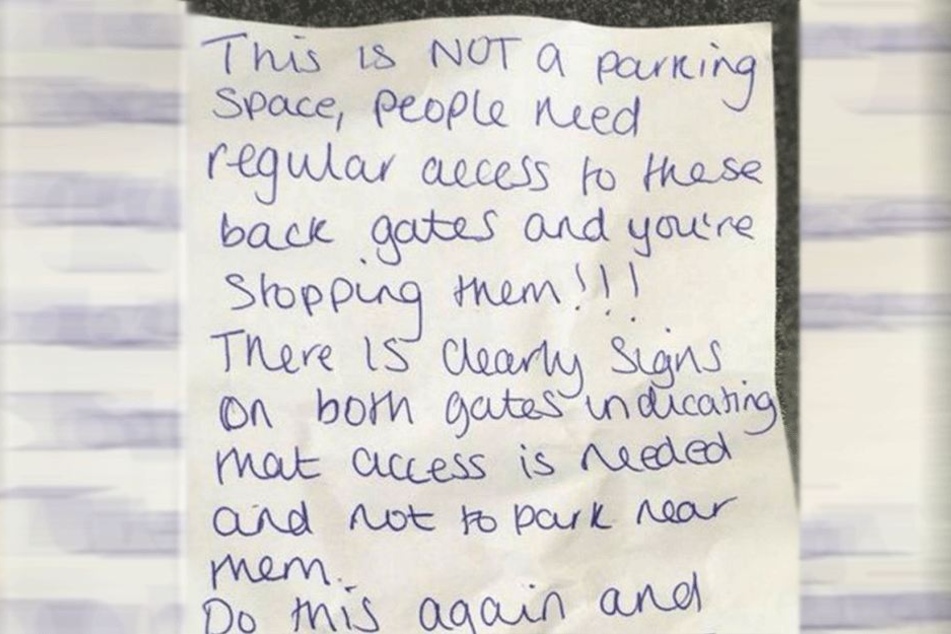 This is NOT a parking
space, people need
regular access to these
back gates and you're
stopping them!!!
There is clearly signs
on both gates indicating
that access is needed
and not to park near
them.
Do this again and